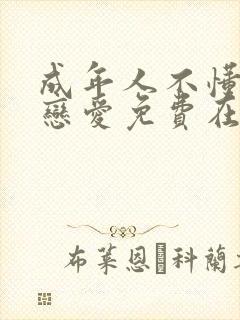 成年人不懂
戀愛免費在
布萊恩 科蘭